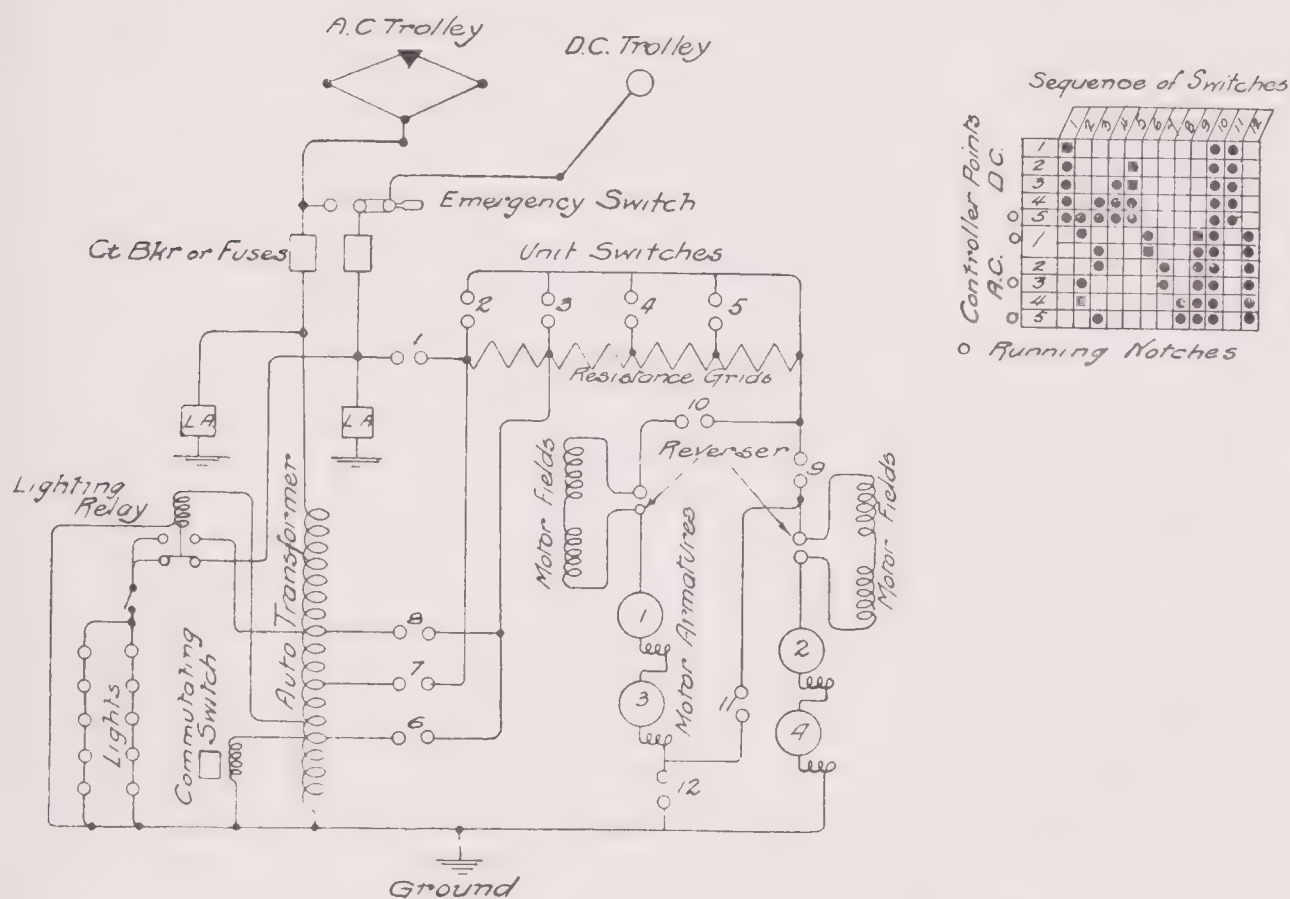 A.C Trolley
D.C. Trolley
Emergency Switch
Ct Bkr or Fuses
Unit Switches
2
3
4
5
1
Resistance Grids
L A
L A
10
Reverser
9
Motor Fields
Motor Fields
Lighting
Relay
Auto Transformer
Motor Armatures
1
3
2
4
8
7
6
11
12
Commutating
Switch
Lights
Ground
Sequence of Switches
1 2 3 4 5 6 7 8 9 10 11 12
Controller Points
D.C.
1
2
3
4
5
A.C.
1
2
3
4
5
Running Notches